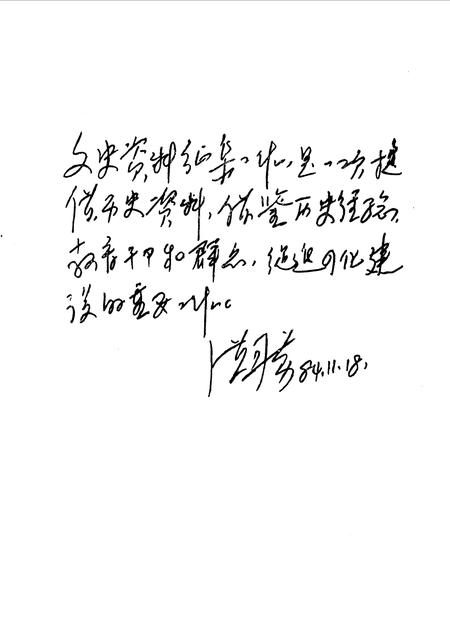 文史资料征集工作，是一项提
供历史资料，借鉴历史经验，
教育干部和群众，促进四化建
设的重要工作。
84.11.18.